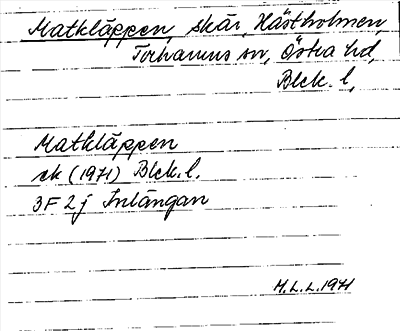 Matkläppen, skär, Hästholmen,
Torhamns sn, Östra hd,
Blek. l,
Matkläppen
ek (1971) Blek. l.
3F 2j Inlängan
M.L.L. 1971